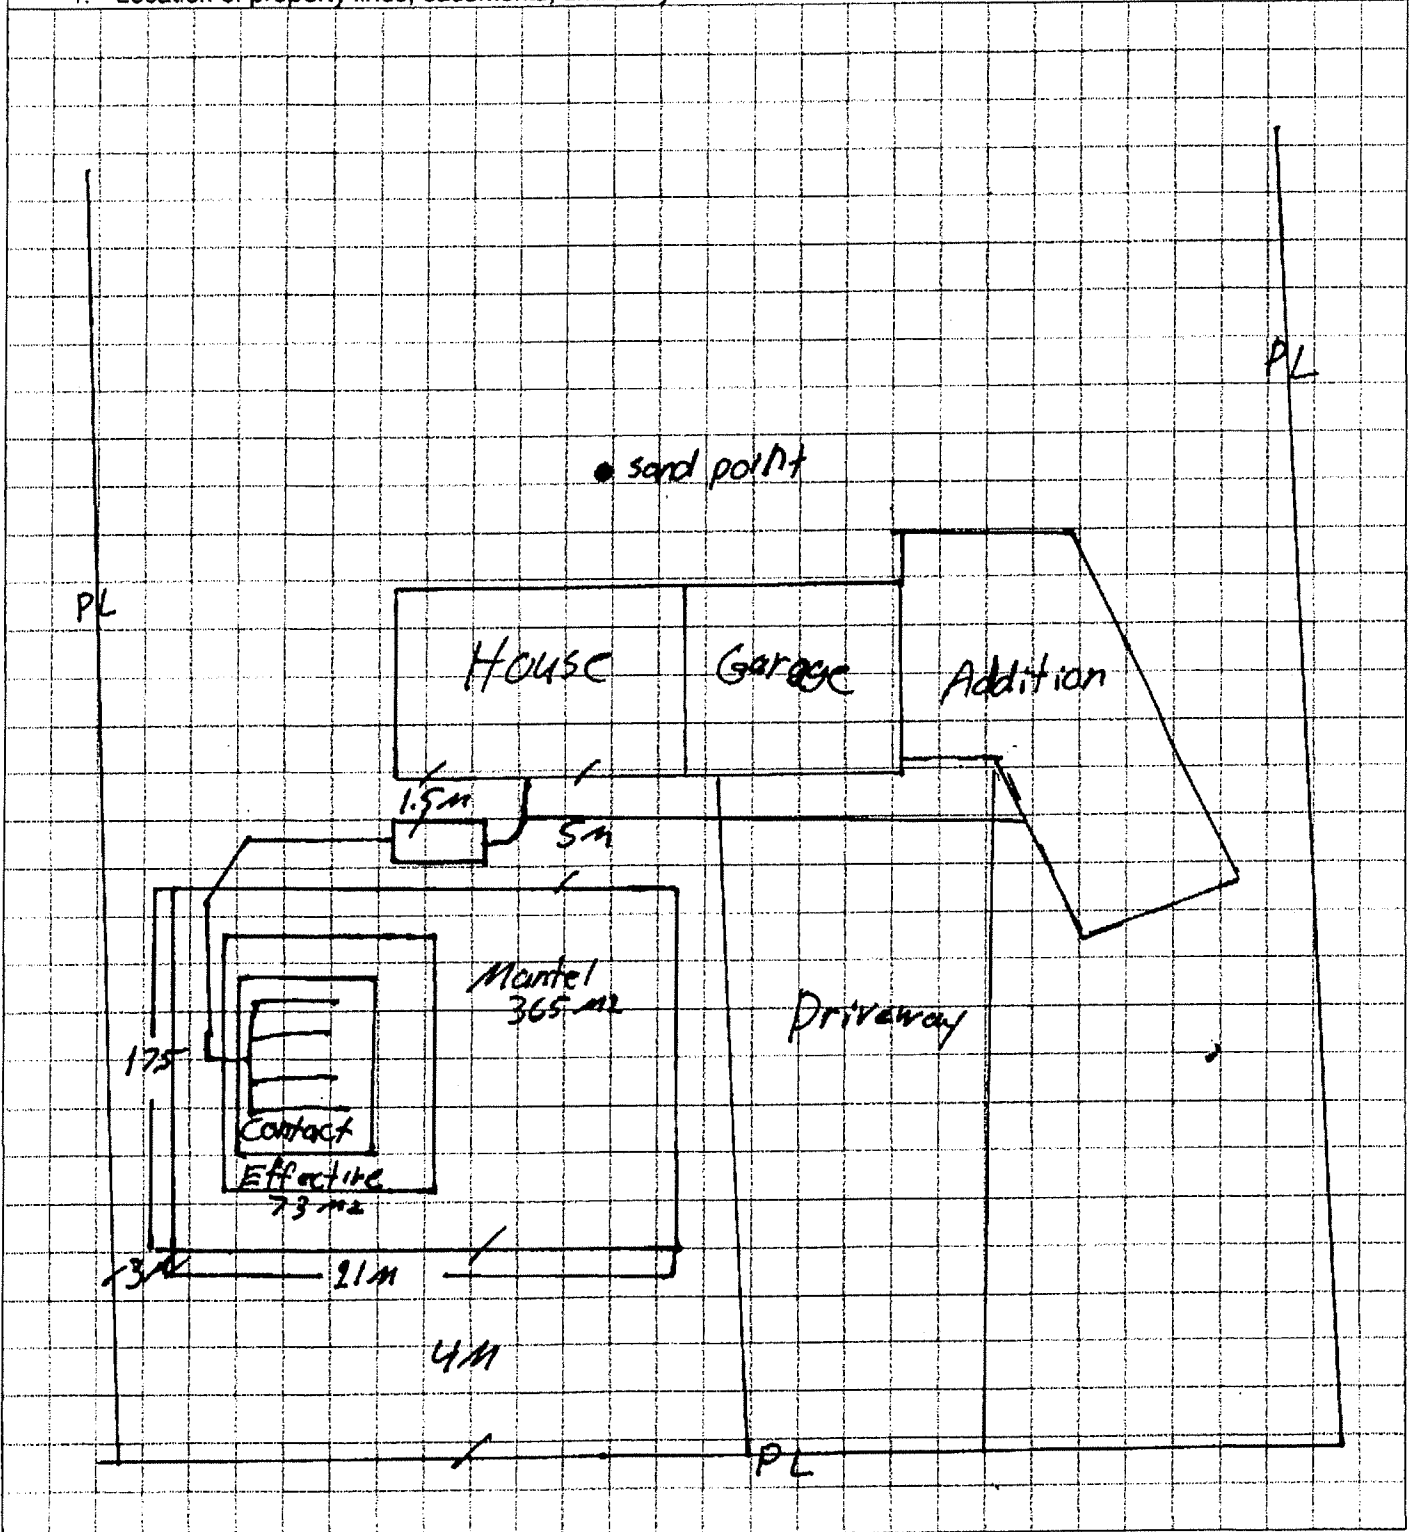 PL
sand point
PL
House
Garage
Addition
1.5 m
5m
Mantel
365 m2
Driveway
175
Contact
Effective
73 m2
3
21m
4M
PL